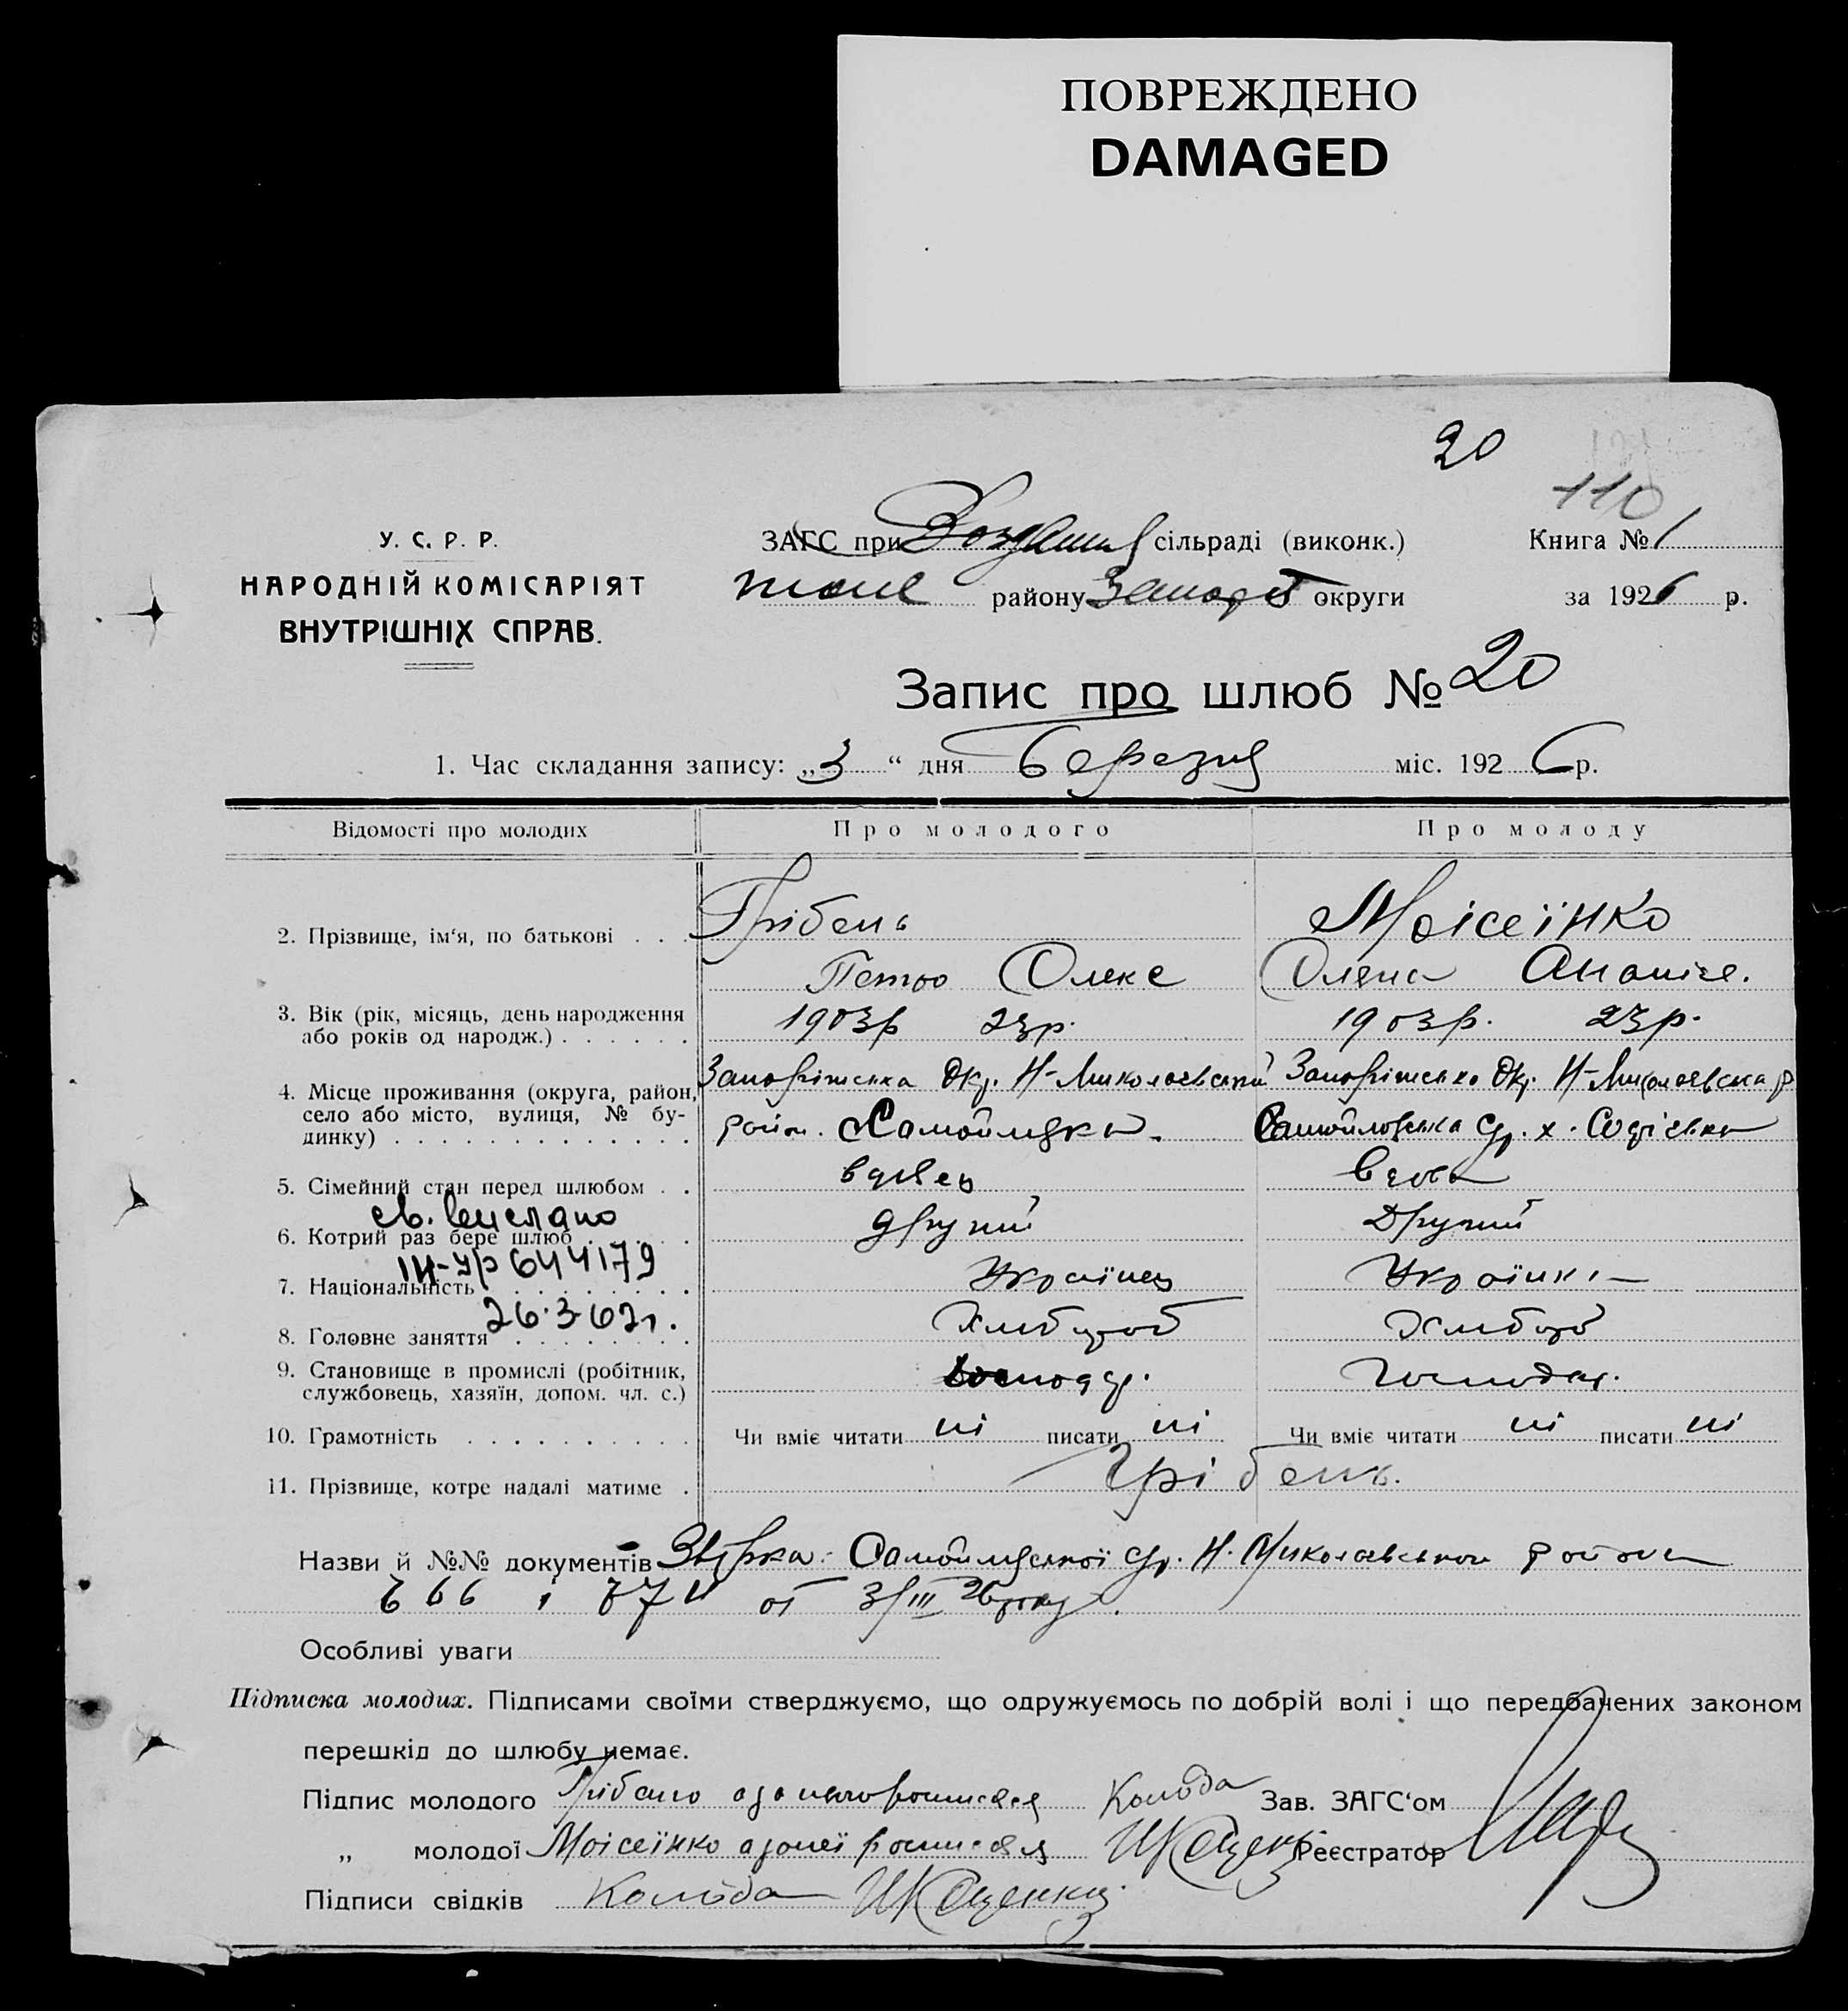 ПОВРЕЖДЕНО
DAMAGED
20
110
У. С. Р. Р.
НАРОДНІЙ КОМІСАРІЯТ
ВНУТРІШНІХ СПРАВ.
ЗАГС при сільраді (виконк.)
району округи
Книга № 1
за 1926 р.
Запис про шлюб № 20
1. Час складання запису: „3“ дня Березня міс. 1926 р.
Відомості про молодих Про молодого Про молоду
2. Прізвище, ім‘я, по батькові . . . Грібень Моісеїнко
Петро Олекс Олена Ананіев.
3. Вік (рік, місяць, день народження 1903р 23р. 1903р. 23р.
або років од народж.) . . . . . .
4. Місце проживання (округа, район, Запоріжська Окр. Н-Миколаевский Запоріжська Окр. Н-Миколаевська р
село або місто, вулиця, № бу- район. Самойлівка. Самойловська ср. х. Софіевка
динку) . . . . . . . . . . . . . .
5. Сімейний стан перед шлюбом . . вдовец вдова
св. выслано
6. Котрий раз бере шлюб . . . . . другий Другий
ІЧ-УР 644179
7. Національність . . . . . . . . . Українец Українка
26.3.62г.
8. Головне заняття . . . . . . . . Хлибороб Хлибороб
9. Становище в промислі (робітник, Господар. Господар.
службовець, хазяїн, допом. чл. с.)
10. Грамотність . . . . . . . . . . Чи вміє читати ні писати ні Чи вміє читати ні писати ні
11. Прізвище, котре надалі матиме . Грібень.
Назви й №№ документів Самойлівської ср. Н. Миколаевського района
666 і от 3/III 26 року.
Особливі уваги
Підписка молодих. Підписами своїми стверджуємо, що одружуємось по добрій волі і що передбачених законом
перешкід до шлюбу немає.
Підпис молодого Колода Зав. ЗАГС‘ом
„ молодої Моісеїнко Реєстратор
Підписи свідків Колода